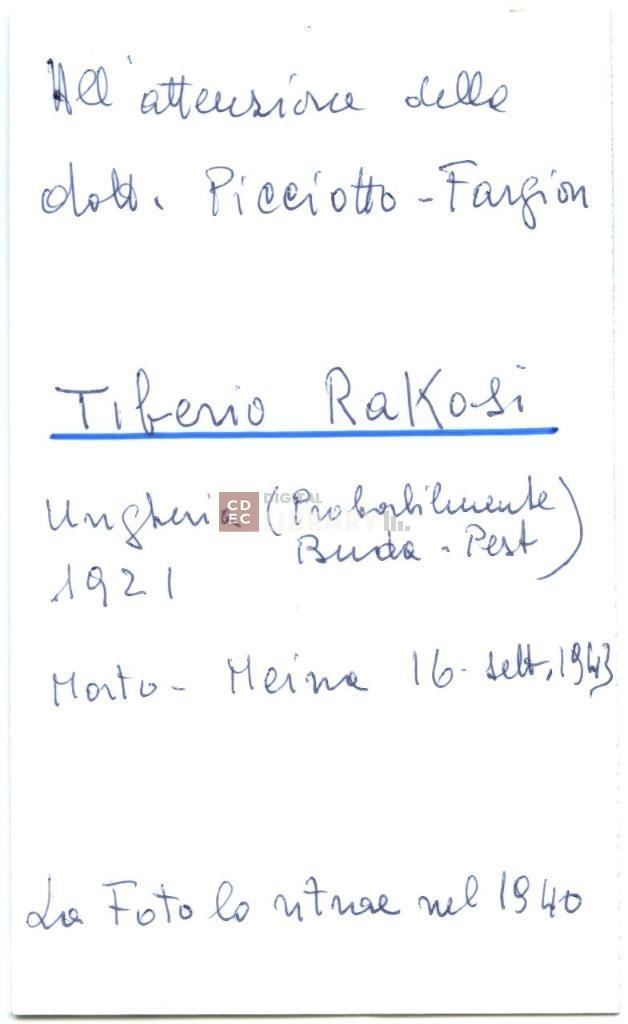 All'attenzione della
dott. Picciotto-Fargion
Tiberio RaKosi
Ungheria (Probabilmente
Buda-Pest)
1921
Morto - Meina 16 sett. 1943
La Foto lo ritrae nel 1940
CD
EC
DIGITAL
LIBRARY